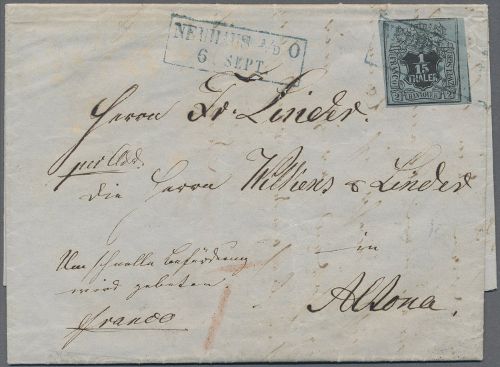 NEUHAUS a/d O
6 SEPT.
1
15
THALER
HANNOVER
Herrn Fr. Linder.
per Add.
die Herrn Wilkens & Linder
in
Um schnelle Beförderung
wird gebeten.
Altona.
franco